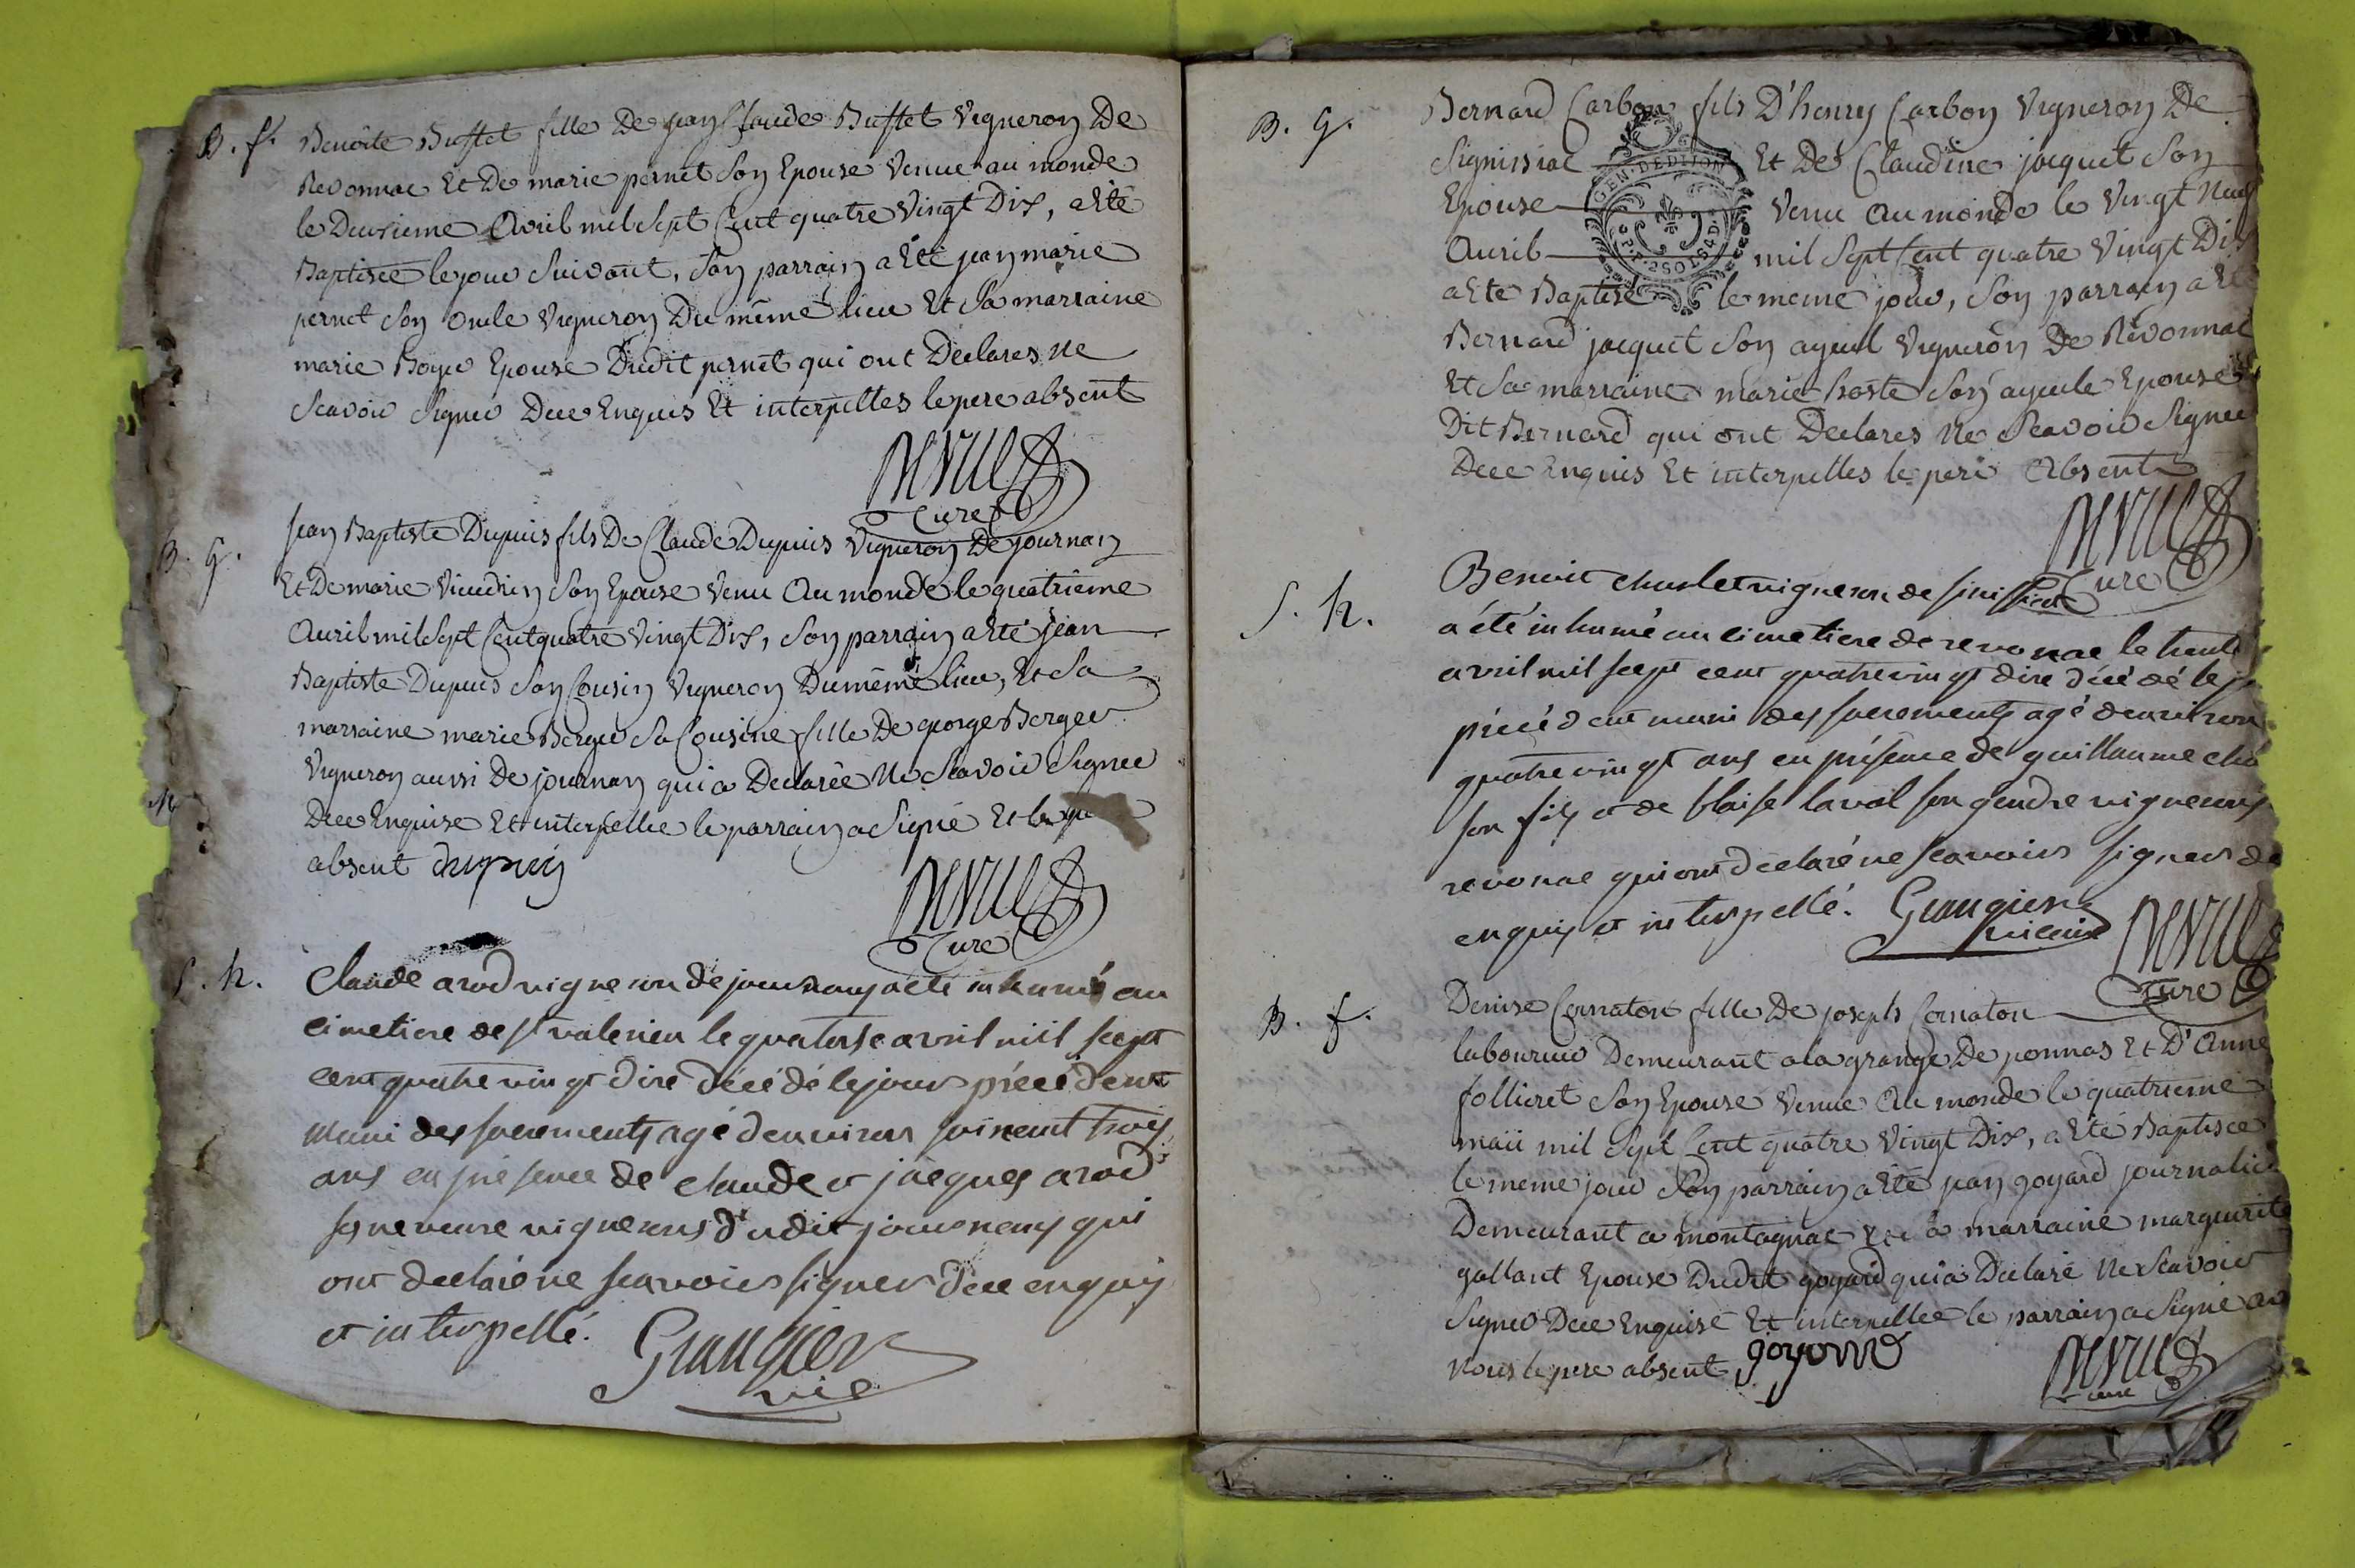 B. f. Benoite Buffet fille De jean Claude Buffet Vigneron De
Revonnac Et De marie pernet Son Epouse Venue au monde
le Deuxieme Avril mil Sept Cent quatre Vingt Dix, a Eté
Baptisée le jour Suivant, Son parrain a Eté jean marie
pernet Son Oncle Vigneron Du même lieu Et Sa marraine
marie Epouse Dudit pernet qui ont Declarés ne
Scavoir Signer De ce Enquis Et interpellés le pere absent
Curé
B. G. jean Baptiste Dupuis fils De Claude Dupuis Vigneron De journan
Et De marie Vieudrin Son Epouse Venu Au monde le quatrieme
Avril mil Sept Cent quatre Vingt Dix, Son parrain a Eté jean
Baptiste Dupuis Son Cousin Vigneron Du même lieu, Et Sa
marraine marie Berger Sa Cousine fille De george Berger
Vigneron aussi De journan qui a Declarée Ne Scavoir Signer
De ce Enquise Et interpellée le parrain a Signé Et
absent dupuis
Curé
S. h. Claude arod vigneron de journan a été inhumé au
cimetiere de st valerien le quatorse avril mil sept
cent quatre vingt dixe décédé le jour précédent
muni des sacrements agé denviron soixent trois
ans en présence de claude et jacques arod
ses neveuxe vignerons dudit journan qui
ont declaré ne scavoir signer de ce enquis
et interpellé. Grangier
vic
B. G. Bernard Carbon fils D'henry Carbon Vigneron De
Signissiac Et De Claudine jacquet Son
Epouse Venu Au monde le Vingt Neuf
Avril mil Sept Cent quatre Vingt Dix
a Eté Baptisé le meme jour, Son parrain a Eté
Bernard jacquet Son ayeul Vigneron De Revonnac
Et Sa marraine marie Son ayeule Epouse
Dit Bernard qui ont Declarés Ne Scavoir Signer
De ce Enquis Et interpellés le pere Absent
GEN. DE DIJON
Curé
S. h. Benoit charlet vigneron de
a été inhumé au cimetiere de revonac le trente
avril mil sept cent quatre vingt dixe décédé le
précédent muni des sacrements agé denviron
quatre vingt ans en présence de guillaume
son fils et de blaise laval son gendre vignerons
revonac qui ont déclaré ne scavoir signer de
enquis et interpellé. Grangier
vicaire
Curé
B. f. Denise Cornaton fille De joseph Cornaton
laboureur Demeurant a la grange De ponnas Et D'Anne
follieret Son Epouse Venue Au monde le quatrieme
maii mil Sept Cent quatre Vingt Dix, a Eté Baptisée
le même jour Son parrain a Eté jean goyard journalier
Demeurant a montagnac Et Sa marraine marguerite
gallant Epouse Dudit goyard qui a Declaré Ne Scavoir
Signer De ce Enquise Et interpellée le parrain a Signé
Nous le pere absent goyard
curé